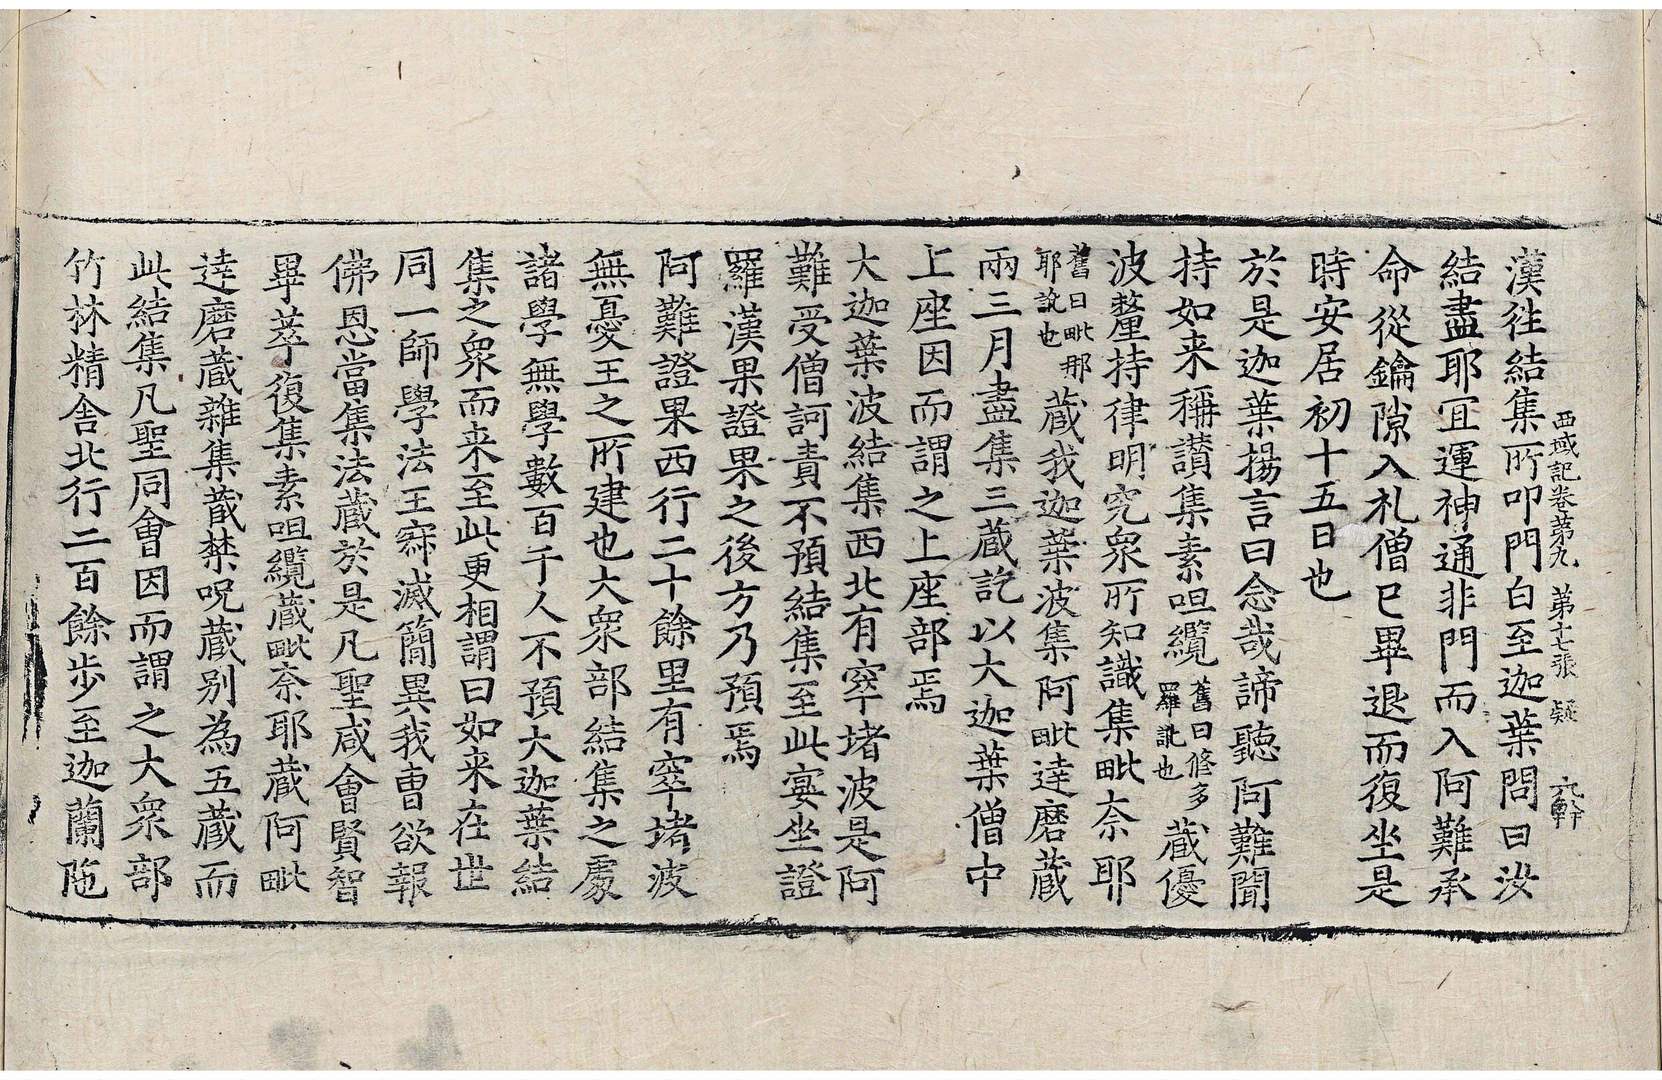 西域記卷第九 第十七張 疑 元幹
漢往結集所叩門白至迦葉問曰汝
結盡耶冝運神通非門而入阿難承
命從鑰隙入礼僧已畢退而復坐是
時安居初十五日也
於是迦葉揚言曰念哉諦聽阿難聞
持如来稱讃集素呾纜舊曰修多羅訛也蔵優
波釐持律明究衆所知識集毗奈耶
舊曰毗那耶訛也蔵我迦葉波集阿毗達磨蔵
兩三月盡集三蔵訖以大迦葉僧中
上座因而謂之上座部焉
大迦葉波結集西北有窣堵波是阿
難受僧訶責不預結集至此宴坐證
羅漢果證果之後方乃預焉
阿難證果西行二十餘里有窣堵波
無憂王之所建也大衆部結集之處
諸學無學數百千人不預大迦葉結
集之衆而来至此更相謂曰如来在世
同一師學法王寂滅簡異我曺欲報
佛恩當集法蔵於是凡聖咸會賢智
畢萃復集素呾纜蔵毗奈耶蔵阿毗
達磨蔵雜集蔵禁呪蔵别為五蔵而
此結集凡聖同會因而謂之大衆部
竹林精舍北行二百餘步至迦蘭陁